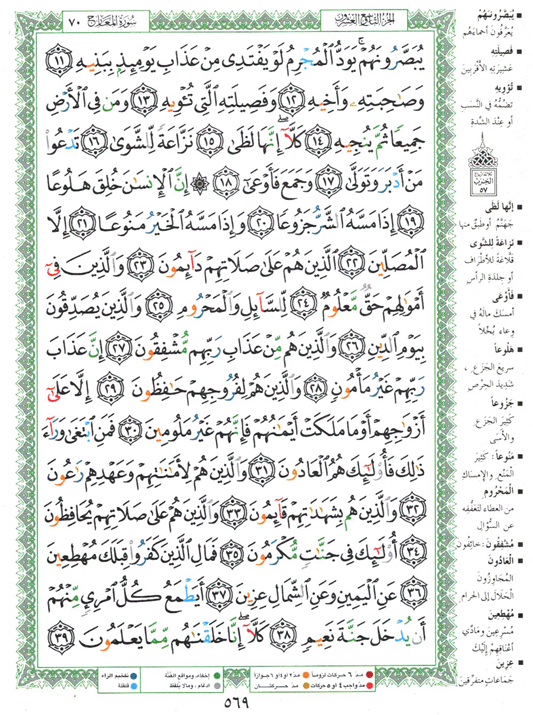 سورة المعارج ٧٠
الجزء التاسع والعشرون
يُبَصَّرُونَهُمْ ۚ يَوَدُّ ٱلْمُجْرِمُ لَوْ يَفْتَدِى مِنْ عَذَابِ يَوْمِئِذٍۭ بِبَنِيهِ ﴿١١﴾
وَصَـٰحِبَتِهِۦ وَأَخِيهِ ﴿١٢﴾ وَفَصِيلَتِهِ ٱلَّتِى تُـْٔوِيهِ ﴿١٣﴾ وَمَن فِى ٱلْأَرْضِ
جَمِيعًا ثُمَّ يُنجِيهِ ﴿١٤﴾ كَلَّآ ۖ إِنَّهَا لَظَىٰ ﴿١٥﴾ نَزَّاعَةً لِّلشَّوَىٰ ﴿١٦﴾ تَدْعُوا۟
مَنْ أَدْبَرَ وَتَوَلَّىٰ ﴿١٧﴾ وَجَمَعَ فَأَوْعَىٰٓ ﴿١٨﴾ ۞ إِنَّ ٱلْإِنسَـٰنَ خُلِقَ هَلُوعًا
﴿١٩﴾ إِذَا مَسَّهُ ٱلشَّرُّ جَزُوعًا ﴿٢٠﴾ وَإِذَا مَسَّهُ ٱلْخَيْرُ مَنُوعًا ﴿٢١﴾ إِلَّا
ٱلْمُصَلِّينَ ﴿٢٢﴾ ٱلَّذِينَ هُمْ عَلَىٰ صَلَاتِهِمْ دَآئِمُونَ ﴿٢٣﴾ وَٱلَّذِينَ فِىٓ
أَمْوَٰلِهِمْ حَقٌّ مَّعْلُومٌ ﴿٢٤﴾ لِّلسَّآئِلِ وَٱلْمَحْرُومِ ﴿٢٥﴾ وَٱلَّذِينَ يُصَدِّقُونَ
بِيَوْمِ ٱلدِّينِ ﴿٢٦﴾ وَٱلَّذِينَ هُم مِّنْ عَذَابِ رَبِّهِم مُّشْفِقُونَ ﴿٢٧﴾ إِنَّ عَذَابَ
رَبِّهِمْ غَيْرُ مَأْمُونٍ ﴿٢٨﴾ وَٱلَّذِينَ هُمْ لِفُرُوجِهِمْ حَـٰفِظُونَ ﴿٢٩﴾ إِلَّا عَلَىٰٓ
أَزْوَٰجِهِمْ أَوْ مَا مَلَكَتْ أَيْمَـٰنُهُمْ فَإِنَّهُمْ غَيْرُ مَلُومِينَ ﴿٣٠﴾ فَمَنِ ٱبْتَغَىٰ وَرَآءَ
ذَٰلِكَ فَأُو۟لَـٰٓئِكَ هُمُ ٱلْعَادُونَ ﴿٣١﴾ وَٱلَّذِينَ هُمْ لِأَمَـٰنَـٰتِهِمْ وَعَهْدِهِمْ رَٰعُونَ
﴿٣٢﴾ وَٱلَّذِينَ هُم بِشَهَـٰدَٰتِهِمْ قَآئِمُونَ ﴿٣٣﴾ وَٱلَّذِينَ هُمْ عَلَىٰ صَلَاتِهِمْ يُحَافِظُونَ
﴿٣٤﴾ أُو۟لَـٰٓئِكَ فِى جَنَّـٰتٍ مُّكْرَمُونَ ﴿٣٥﴾ فَمَالِ ٱلَّذِينَ كَفَرُوا۟ قِبَلَكَ مُهْطِعِينَ
﴿٣٦﴾ عَنِ ٱلْيَمِينِ وَعَنِ ٱلشِّمَالِ عِزِينَ ﴿٣٧﴾ أَيَطْمَعُ كُلُّ ٱمْرِئٍ مِّنْهُمْ
أَن يُدْخَلَ جَنَّةَ نَعِيمٍ ﴿٣٨﴾ كَلَّآ ۖ إِنَّا خَلَقْنَـٰهُم مِّمَّا يَعْلَمُونَ ﴿٣٩﴾
يُبَصَّرُونَهُمْ
يُعَرَّفُونَ أحماءَهم
فَصِيلَتِهِ
عَشِيرَتِهِ الأقْرَبينَ
تُؤْوِيهِ
تَضُمُّهُ في النَّسَبِ
أو عِنْدَ الشِّدّةِ
الحزب
٥٧
إنّها لَظَى
جَهَنَّمُ أو طبقٌ منها
نَزَاعَةً لِلشَّوى
قَلَّاعَةً للأطْرافِ
أو جلدةِ الرأسِ
فَأَوْعَى
أمسكَ مالَهُ في
وعاءٍ بُخْلاً
هَلُوعاً
سريعَ الجَزَعِ،
شديدَ الحِرْصِ
جَزُوعاً
كثيرَ الجَزَعِ
والأسَى
مَنُوعاً: كثيرَ
المَنْعِ والإمساكِ
المَحْرُومِ
من العطاءِ لتعفُّفِهِ
عن السُّؤالِ
مُشْفِقُونَ: خائِفُونَ
العَادُونَ
المُجَاوِزُونَ
الحَلَالَ إلى الحرامِ
مُهْطِعِينَ
مُسْرِعينَ ومَادِّي
أعناقِهمْ إليْكَ
عِزِينَ
جَمَاعَاتٍ متفرّقينَ
مدّ ٦ حركات لزوماً مدّ ٢ أو ٤ أو ٦ جوازاً إخفاء، ومواقع الغنّة تفخيم الراء
مدّ واجب ٤ أو ٥ حركات مدّ حركتان ادغام، وما لا يلفظ قلقلة
٥٦٩